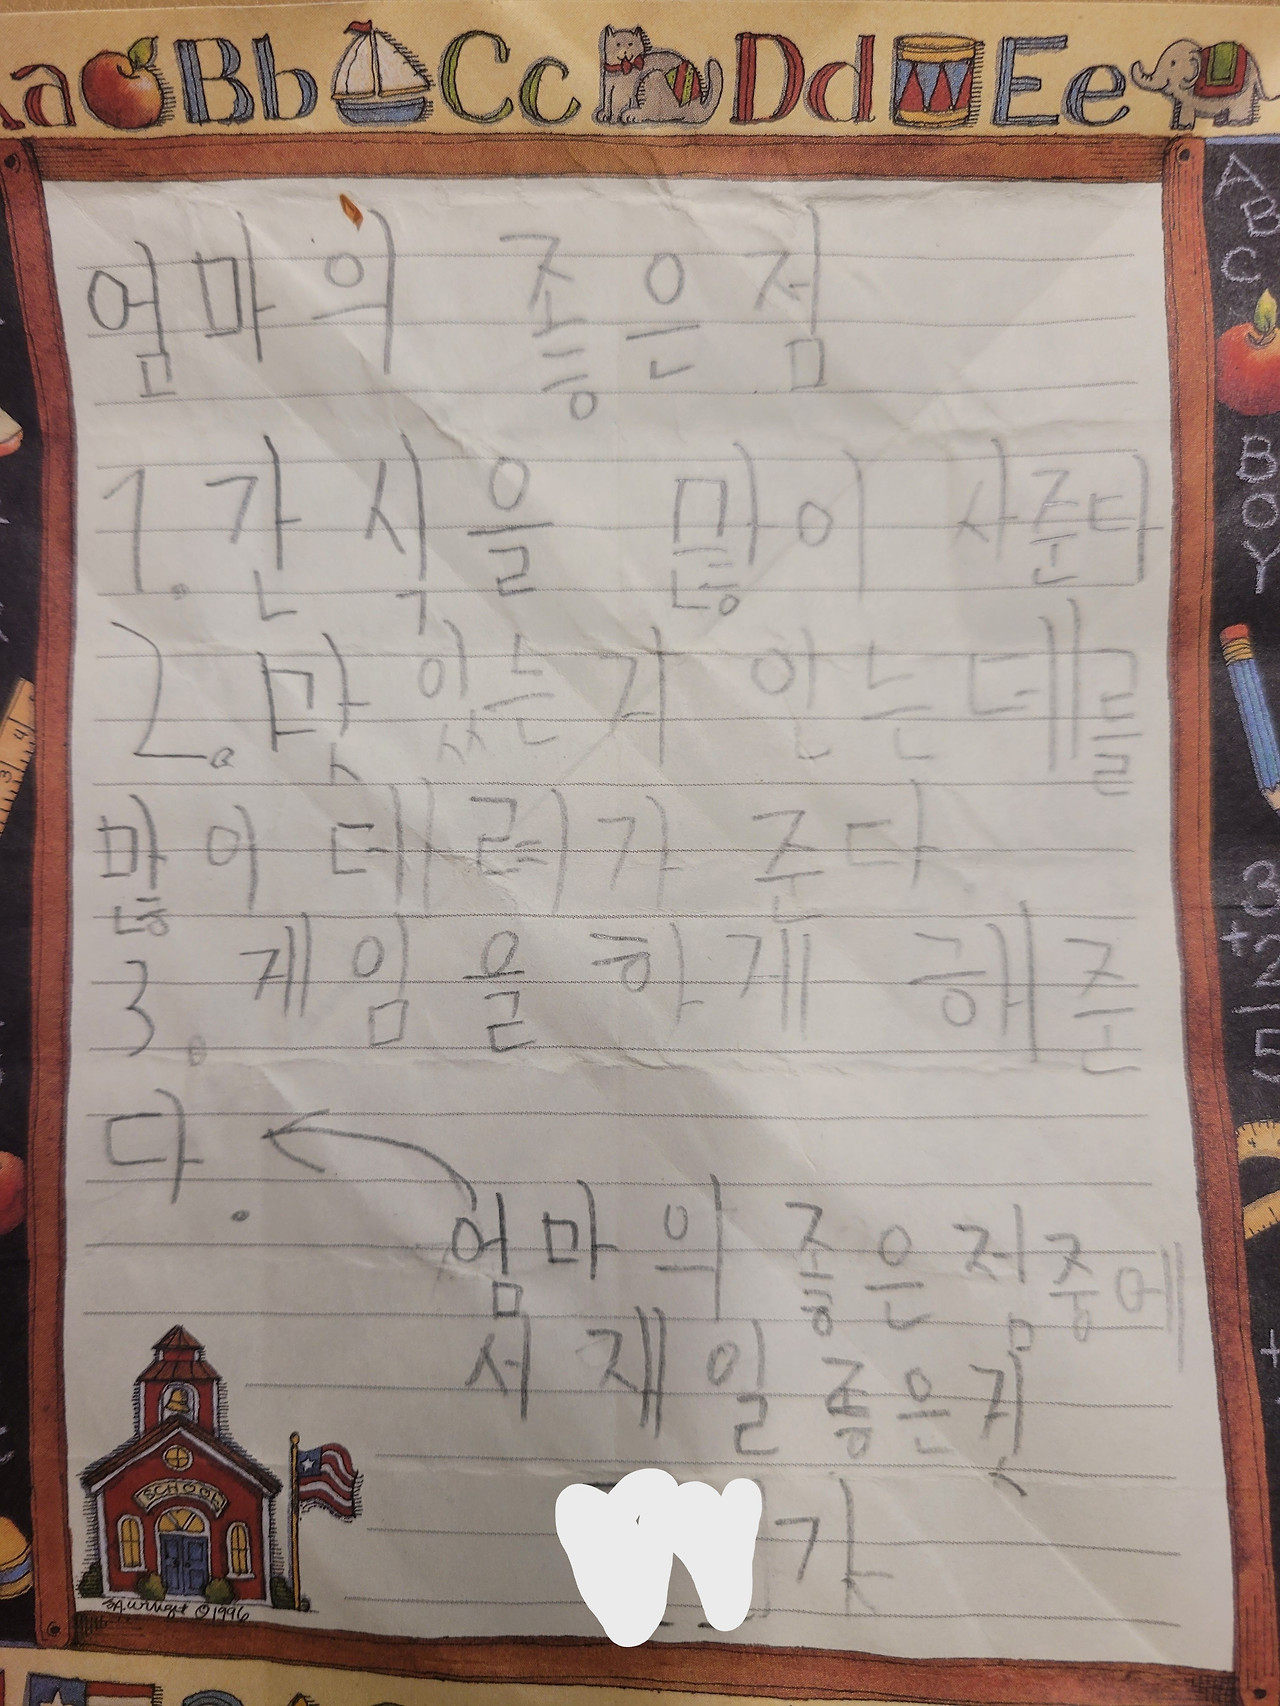 Aa Bb Cc Dd Ee
엄마의 좋은점
1. 간식을 많이 사준다
2. 맛있는거 안는데를
많이 데려가 준다.
3. 게임을 하게 해준
다.
엄마의 좋은점중에
서 제일 좋은것
가
SCHOOL
©1996
A
B
C
B
O
Y
3
+2
5